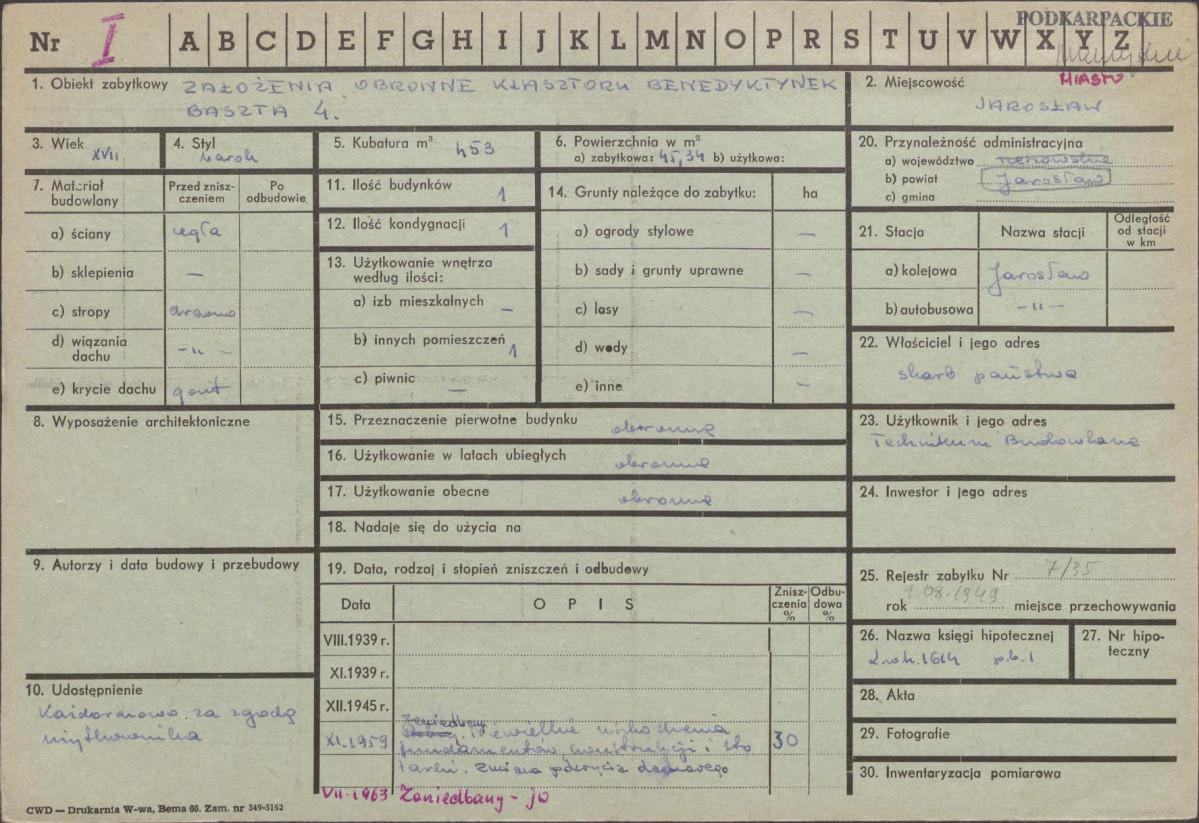 PODKARPACKIE
Nr I A B C D E F G H I J K L M N O P R S T U V W X Y Z
1. Obiekt zabytkowy ZAŁOŻENIA OBRONNE KLASZTORU BENEDYKTYNEK
BASZTA 4.
2. Miejscowość MIASTO
JAROSŁAW
3. Wiek XVII
4. Styl barok
5. Kubatura m³ 453
6. Powierzchnia w m²
a) zabytkowa: 45,34 b) użytkowa:
7. Materiał budowlany
Przed zniszczeniem
Po odbudowie
a) ściany cegła
b) sklepienia —
c) stropy drewno
d) wiązania dachu -„-
e) krycie dachu gont
8. Wyposażenie architektoniczne
9. Autorzy i data budowy i przebudowy
10. Udostępnienie
Każdorazowo za zgodą
użytkownika
11. Ilość budynków 1
12. Ilość kondygnacji 1
13. Użytkowanie wnętrza
według ilości:
a) izb mieszkalnych —
b) innych pomieszczeń 1
c) piwnic —
14. Grunty należące do zabytku: ha
a) ogrody stylowe —
b) sady i grunty uprawne —
c) lasy —
d) wody —
e) inne —
15. Przeznaczenie pierwotne budynku obronne
16. Użytkowanie w latach ubiegłych obronne
17. Użytkowanie obecne obronne
18. Nadaje się do użycia na
19. Data, rodzaj i stopień zniszczeń i odbudowy
Data OPIS Zniszczenia % Odbudowa %
VIII.1939 r.
XI.1939 r.
XII.1945 r.
zaniedbany
XI.1959 Niewielkie uszkodzenia 30
fundamentów konstrukcji i sto
larki. Zmiana pokrycia dachowego
VII-1963 Zaniedbany - jw
20. Przynależność administracyjna
a) województwo rzeszowskie
b) powiat Jarosław
c) gmina
21. Stacja Nazwa stacji Odległość od stacji w km
a) kolejowa Jarosław
b) autobusowa -„-
22. Właściciel i jego adres
skarb państwa
23. Użytkownik i jego adres
Technikum Budowlane
24. Inwestor i jego adres
25. Rejestr zabytku Nr 7/35
rok 1.08.1949 miejsce przechowywania
26. Nazwa księgi hipotecznej
1614 p.b.1
27. Nr hipoteczny
28. Akta
29. Fotografie
30. Inwentaryzacja pomiarowa
CWD — Drukarnia W-wa, Bema 60. Zam. nr 349-5162